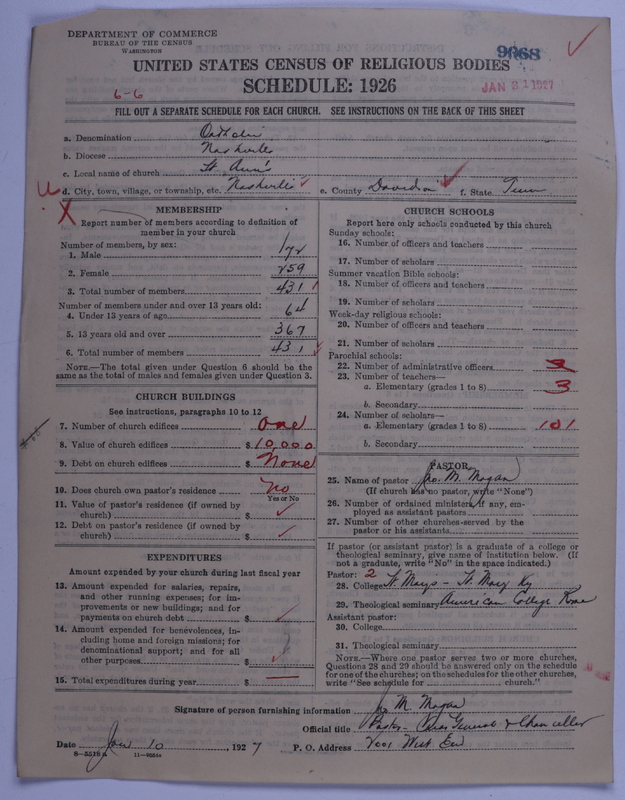 DEPARTMENT OF COMMERCE
BUREAU OF THE CENSUS
WASHINGTON
9068
UNITED STATES CENSUS OF RELIGIOUS BODIES
SCHEDULE: 1926
6-6
JAN 31 1927
FILL OUT A SEPARATE SCHEDULE FOR EACH CHURCH. SEE INSTRUCTIONS ON THE BACK OF THIS SHEET
a. Denomination Catholic
b. Diocese Nashville
c. Local name of church St. Ann's
d. City, town, village, or township, etc. Nashville e. County Davidson f. State Tenn
MEMBERSHIP
Report number of members according to definition of
member in your church
Number of members, by sex:
1. Male 172
2. Female 259
3. Total number of members 431
Number of members under and over 13 years old:
4. Under 13 years of age 64
5. 13 years old and over 367
6. Total number of members 431
NOTE.—The total given under Question 6 should be
same as the total of males and females given under Question 3.
CHURCH BUILDINGS
See instructions, paragraphs 10 to 12
7. Number of church edifices One
8. Value of church edifices $ 10,000
9. Debt on church edifices $ None
10. Does church own pastor's residence No
Yes or No
11. Value of pastor's residence (if owned by
church) $
12. Debt on pastor's residence (if owned by
church) $
EXPENDITURES
Amount expended by your church during last fiscal year
13. Amount expended for salaries, repairs,
and other running expenses; for im-
provements or new buildings; and for
payments on church debt $
14. Amount expended for benevolences, in-
cluding home and foreign missions; for
denominational support; and for all
other purposes $
15. Total expenditures during year $
CHURCH SCHOOLS
Report here only schools conducted by this church
Sunday schools:
16. Number of officers and teachers
17. Number of scholars
Summer vacation Bible schools:
18. Number of officers and teachers
19. Number of scholars
Week-day religious schools:
20. Number of officers and teachers
21. Number of scholars
Parochial schools:
22. Number of administrative officers
23. Number of teachers—
a. Elementary (grades 1 to 8) 3
b. Secondary
24. Number of scholars—
a. Elementary (grades 1 to 8) 101
b. Secondary
PASTOR
25. Name of pastor Jno. M. Mogan
(If church has no pastor, write "None")
26. Number of ordained ministers, if any, em-
ployed as assistant pastors
27. Number of other churches served by the
pastor or his assistants
If pastor (or assistant pastor) is a graduate of a college or
theological seminary, give name of institution below. (If
not a graduate, write "No" in the space indicated.)
Pastor: 2
28. College St Marys - St Mary Ky
29. Theological seminary American College Rome
Assistant pastor:
30. College
31. Theological seminary
NOTE.—Where one pastor serves two or more churches,
Questions 28 and 29 should be answered only on the schedule
for one of the churches; on the schedules for the other churches,
write "See schedule for church."
Signature of person furnishing information Jno M. Mogan
Official title Pastor - Vicar General & Chancellor
Date Jan 10, 1927 P. O. Address 2001 West End
8-5518a 11-9054a